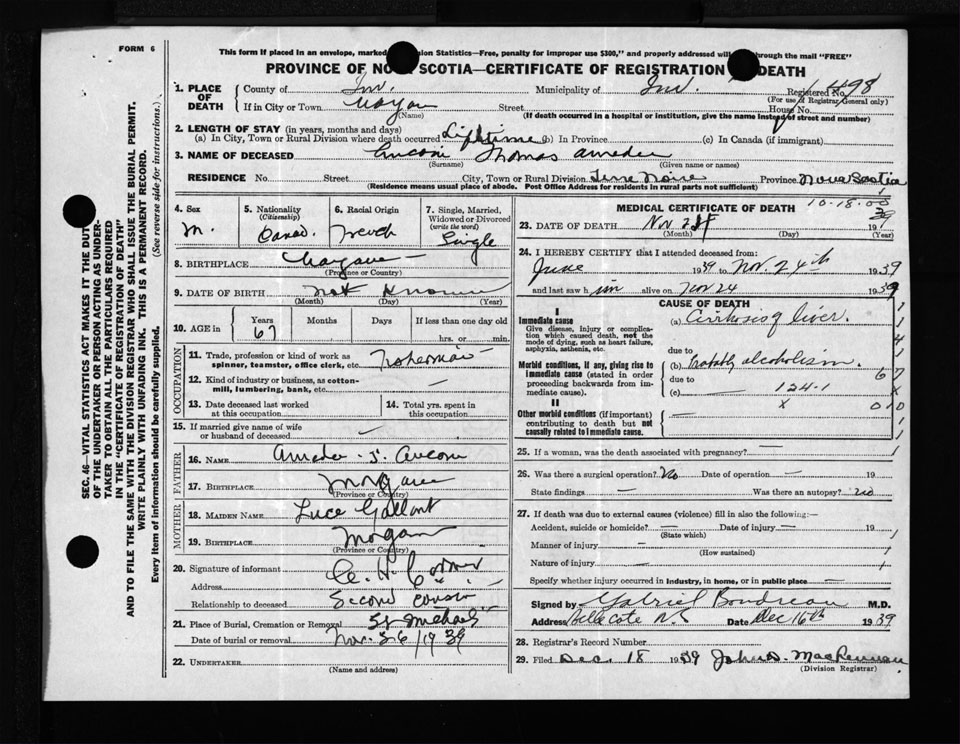 FORM 6
This form if placed in an envelope, marked Statistics—Free, penalty for improper use $300," and properly addressed will through the mail "FREE"
PROVINCE OF NOVA SCOTIA—CERTIFICATE OF REGISTRATION OF DEATH
1. PLACE OF DEATH
County of Inv. Municipality of Inv. Registered No. 1498
(For use of Registrar General only)
If in City or Town Street House No.
(Name) (If death occurred in a hospital or institution, give the name instead of street and number)
2. LENGTH OF STAY (in years, months and days)
(a) In City, Town or Rural Division where death occurred Lifetime (b) In Province (c) In Canada (if immigrant)
3. NAME OF DECEASED Aucoin Thomas Amedee
(Surname) (Given name or names)
RESIDENCE No. Street City, Town or Rural Division Terre Noire Province Nova Scotia
(Residence means usual place of abode. Post Office Address for residents in rural parts not sufficient)
4. Sex M.
5. Nationality (Citizenship) Canad.
6. Racial Origin French
7. Single, Married, Widowed or Divorced (write the word) Single
8. BIRTHPLACE Margaree
(Province or Country)
9. DATE OF BIRTH Not Known
(Month) (Day) (Year)
10. AGE IN Years Months Days If less than one day old
67 hrs. or min.
OCCUPATION
11. Trade, profession or kind of work as spinner, teamster, office clerk, etc. Fisherman
12. Kind of industry or business, as cotton-mill, lumbering, bank, etc. —
13. Date deceased last worked at this occupation
14. Total yrs. spent in this occupation
15. If married give name of wife or husband of deceased —
FATHER
16. Name Amedee S. Aucoin
17. Birthplace Margaree
(Province or Country)
MOTHER
18. Maiden Name Luce Gallant
19. Birthplace
(Province or Country)
20. Signature of informant
Address
Relationship to deceased Second cousin
21. Place of Burial, Cremation or Removal St Michaels
Date of burial or removal Nov. 26 / 19 39
22. UNDERTAKER
(Name and address)
MEDICAL CERTIFICATE OF DEATH
10-18.00
23. DATE OF DEATH Nov 24 19 39
(Month) (Day) (Year)
24. I HEREBY CERTIFY that I attended deceased from:
June 1939 to Nov. 24th 1939
and last saw him alive on Nov 24 1939
CAUSE OF DEATH
I
Immediate cause (a) Cirrhosis of liver.
Give disease, injury or complication which caused death, not the mode of dying, such as heart failure, asphyxia, asthenia, etc.
due to
Morbid conditions, if any, giving rise to immediate cause (stated in order proceeding backwards from immediate cause).
(b) Probably alcoholism.
due to
(c) 124.1
II
Other morbid conditions (if important) contributing to death but not causally related to immediate cause.
25. If a woman, was the death associated with pregnancy? —
26. Was there a surgical operation? No Date of operation — 19
State findings — Was there an autopsy? no
27. If death was due to external causes (violence) fill in also the following:—
Accident, suicide or homicide? — Date of injury — 19
(State which)
Manner of injury —
(How sustained)
Nature of injury —
Specify whether injury occurred in industry, in home, or in public place —
Signed by Gabriel Boudreau M.D.
Address Belle Cote N.S Date Dec 16th 1939
28. Registrar's Record Number
29. Filed Dec. 18 1939 John D. MacLennan
(Division Registrar)
SEC. 46—VITAL STATISTICS ACT MAKES IT THE DUTY
OF THE UNDERTAKER OR PERSON ACTING AS UNDER-
TAKER TO OBTAIN ALL THE PARTICULARS REQUIRED
IN THE "CERTIFICATE OF REGISTRATION OF DEATH"
AND TO FILE THE SAME WITH THE DIVISION REGISTRAR WHO SHALL ISSUE THE BURIAL PERMIT.
WRITE PLAINLY WITH UNFADING INK. THIS IS A PERMANENT RECORD.
Every item of information should be carefully supplied. (See reverse side for instructions.)